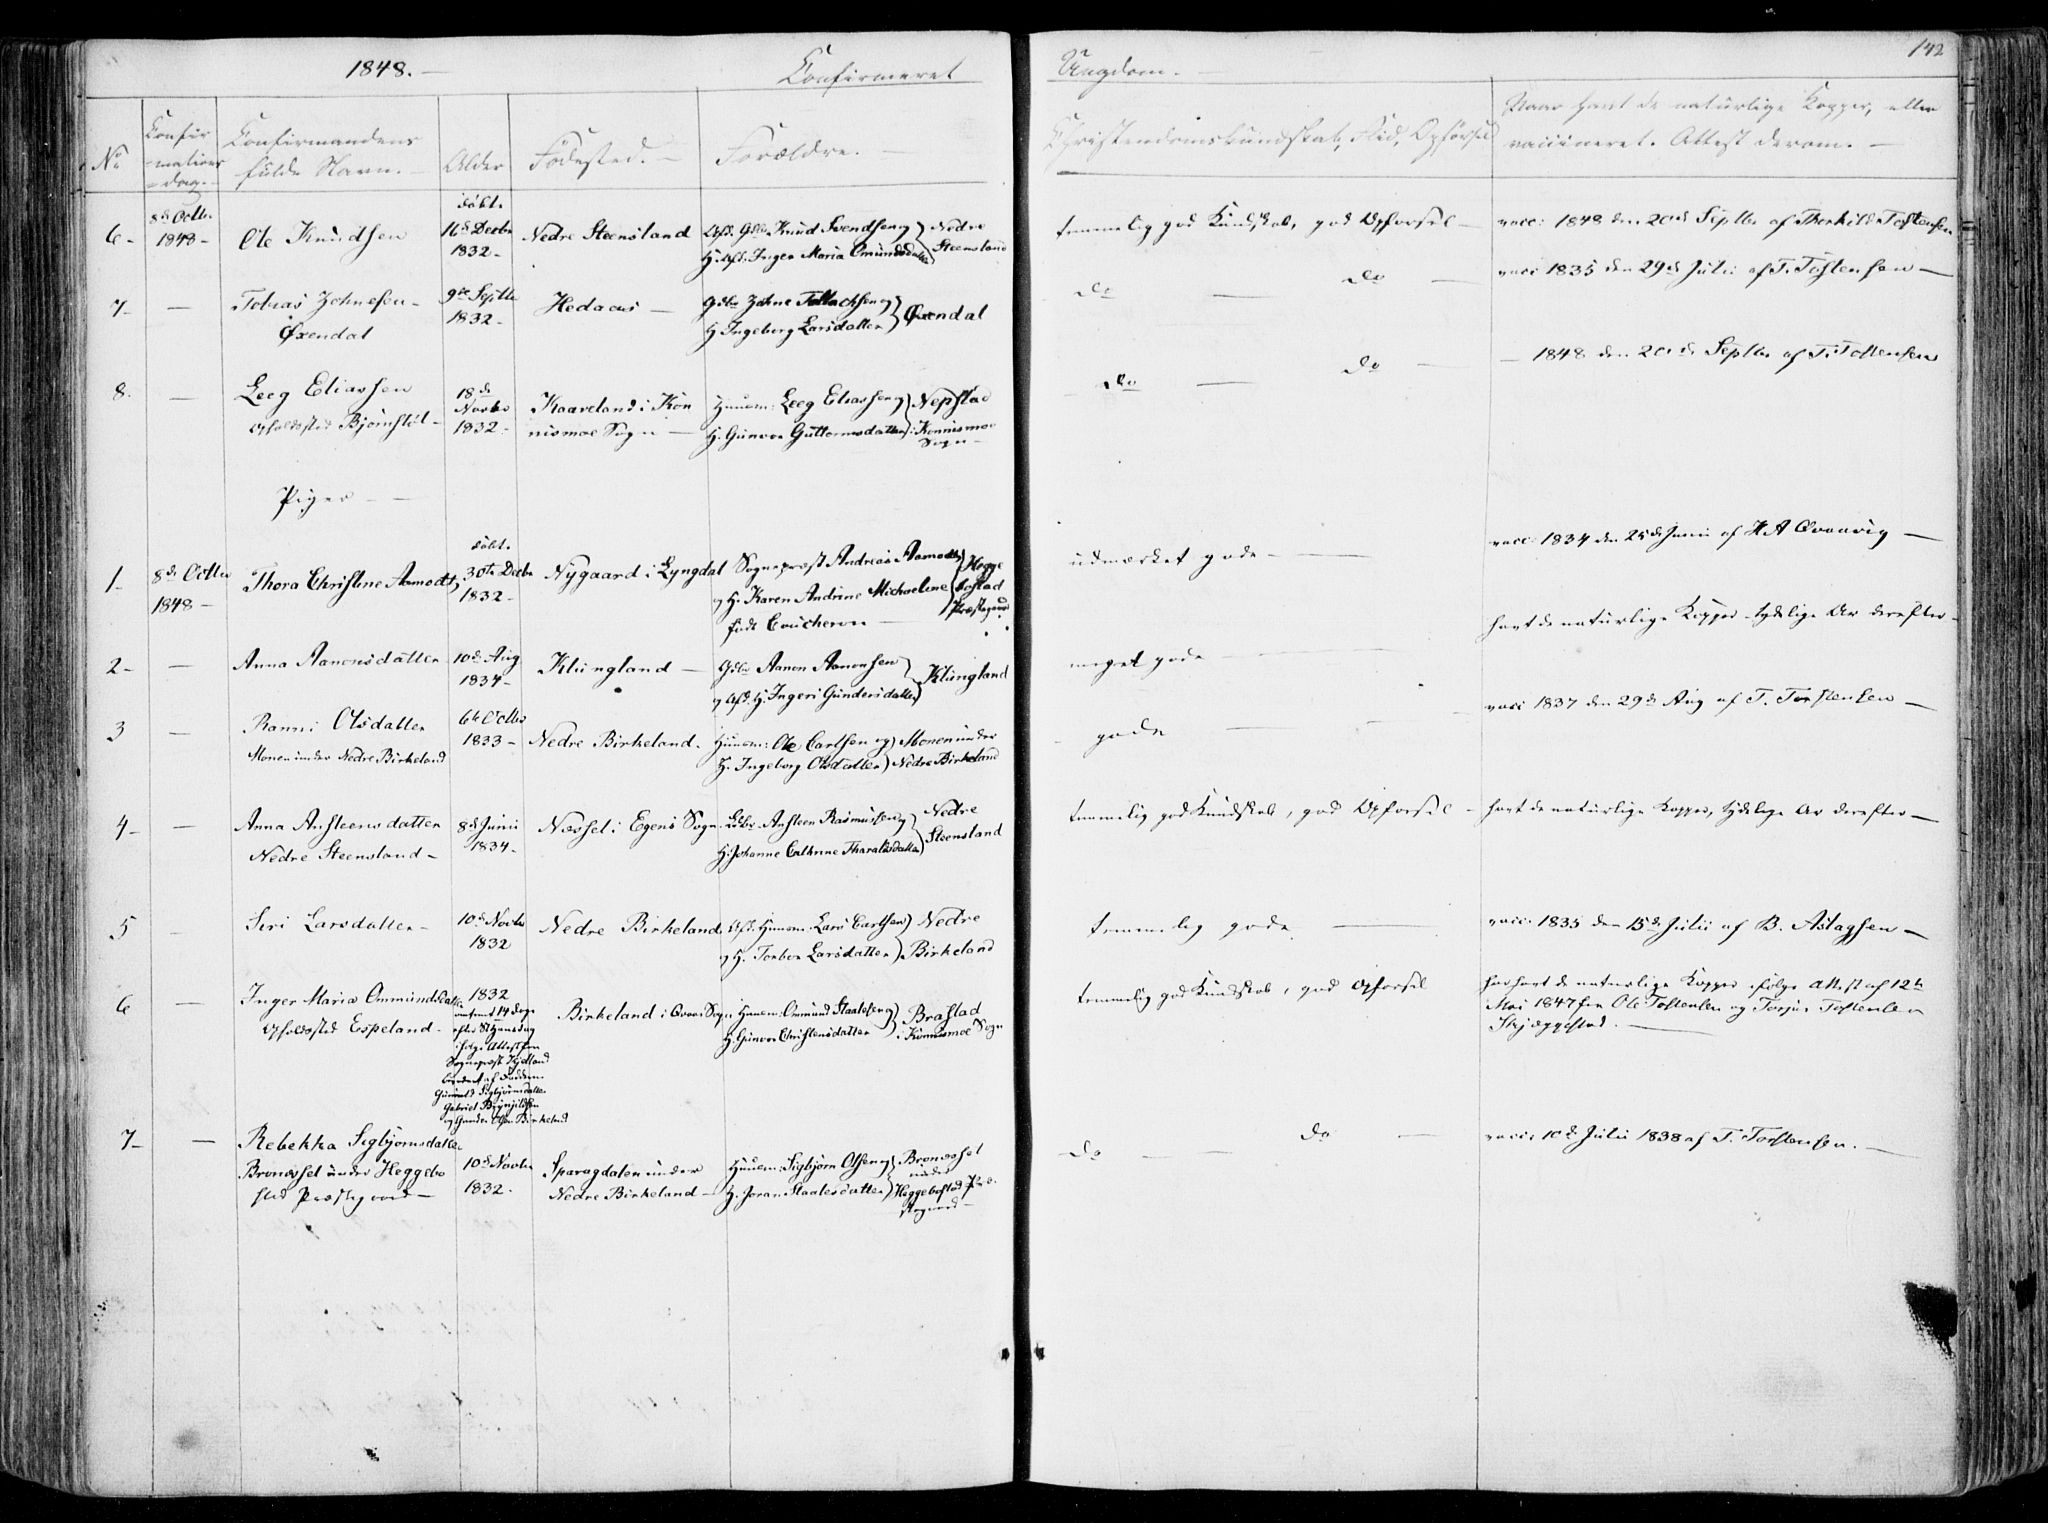 1848. — Confirmeret Ungdom. 142
No
Confir-
-mations
-dag.
Confirmandens
fulde Navn. —
Alder
Fødested. —
Forældre. —
Christendomskundskab, Flid, Opførsel
Naar havt de naturlige Kopper, eller
vaccineret. Attest derom. —
6 - 8de Octbr. 1848 -
Ole Knudsen
døbt. 16de Decbr 1832 -
Nedre Steensland
Afd. Gdbr Knud Svendsen og
H. Afd. Inger Maria Omundsdatter
Nedre Steensland
temmelig god Kundskab, god Opforsel -
vacc: 1848 den 20de Septbr af Therkild Tostensen
7 - —
Tobias Zchnesen -
Øxendal
9de Septbr 1832 -
Hedaas —
Gdbr Zchne Tallachsen og
H. Ingeborg Larsdatter
Øxendal
do — do —
vacc 1835 den 29de Julii af T. Tostensen —
8. —
Leeg Eliassen
Opholdssted Bjørnstøl -
18de Novbr 1832 -
Kaareland i Kon
nismoe Sogn —
Huusm: Leeg Eliassen og
H. Gunvor Guttormsdatter
Nepstad i Konnismoe Sogn -
do — do —
— 1848 den 20de Septbr af T. Tostensen
Piger — —
1 - 8de Octbr 1848 -
Thora Christine Aamodt,
døbt. 30te Decbr 1832 -
Nygaard i Lyngdal
Sognepræst Andreas Aamodt
og H. Karen Andrine Michaelene
født Coucheron —
Heggebostad Præstegaard
udmærket gode — —
vacc: 1834 den 25de Junii af H A Qvaavig —
2 - —
Anna Aanonsdatter
10de Aug 1834 -
Klungland —
Gdbr Aanon Aanonsen
og Afd. H. Ingeri Gundersdatter
Klungland
meget gode — —
havt de naturlige Kopper tydelige Ar derefter -
3 —
Ranni Olsdatter
Monen under Nedre Birkeland
6te Octbr 1833 -
Nedre Birkeland.
Huusm: Ole Carlsen og
H. Ingeborg Olsdatter
Monen under Nedre Birkeland
gode — —
vacc 1837 den 29de Aug af T. Torstensen —
4 - —
Anna Ansteensdatter
Nedre Steensland —
8de Junii 1834 -
Næssel i Egens Sogn
Ansteen Rasmussen og
H. Johanne Cathrine Tharaldsdatter
Nedre Steensland
temmelig god Kundskab, god Opforsel -
havt de naturlige Kopper, tydelige Ar derefter —
5 —
Siri Larsdatter -
10de Novbr 1832
Nedre Birkeland
Afd. Huusm: Lars Carlsen
og H. Torbor Larsdatter
Nedre Birkeland
temmelig gode —
vacc: 1835 den 15de Julii af B. Aslagsen —
6 —
Inger Maria Ommundsdatter
Opholdssted Erspeland -
1832
omtrent 14 dage
efter St Hansdag
ifolge Attest fra
Sognepræst Kjelland
af Fadderne
Gunvald Sigbjørnsdatter
Gabriel Brynjildsen
og Gunder Olsen Birkeland
Birkeland i Qvaas Sogn
Huusm: Ommund Staalesen og
H. Gunvor Christensdatter
Brastad i Konnismoe Sogn
temmelig god Kundskab, god Opforsel
har havt de naturlige Kopper ifølge Attest af 12te
Mai 1847 fra Ole Tostensen og Torjus Tostensen
Skjeggestad. —
7 - —
Rebekka Sigbjørnsdatter
Bronessel under Heggebo
sted Præstegaard —
10de Novbr 1832.
Sparagdalen under
Nedre Birkeland —
Huusm: Sigbjørn Olsen og
H. Joran Staalesdatter
Bronessel under Heggebostad Præstegaard —
do — — do —
vacc: 10de Julii 1838 af T. Torstensen. —